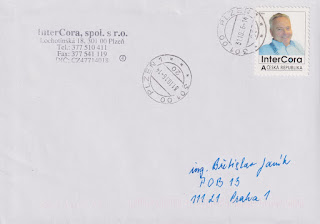 InterCora, spol. s r.o.
Lochotínská 18, 301 00 Plzeň
Tel.: 377 510 411
Fax: 377 541 119
DIČ: CZ47714018
PLZEŇ 1
301 00
InterCora
A ČESKÁ REPUBLIKA
ing. Břetislav Janík
POB 13
111 21 Praha 1